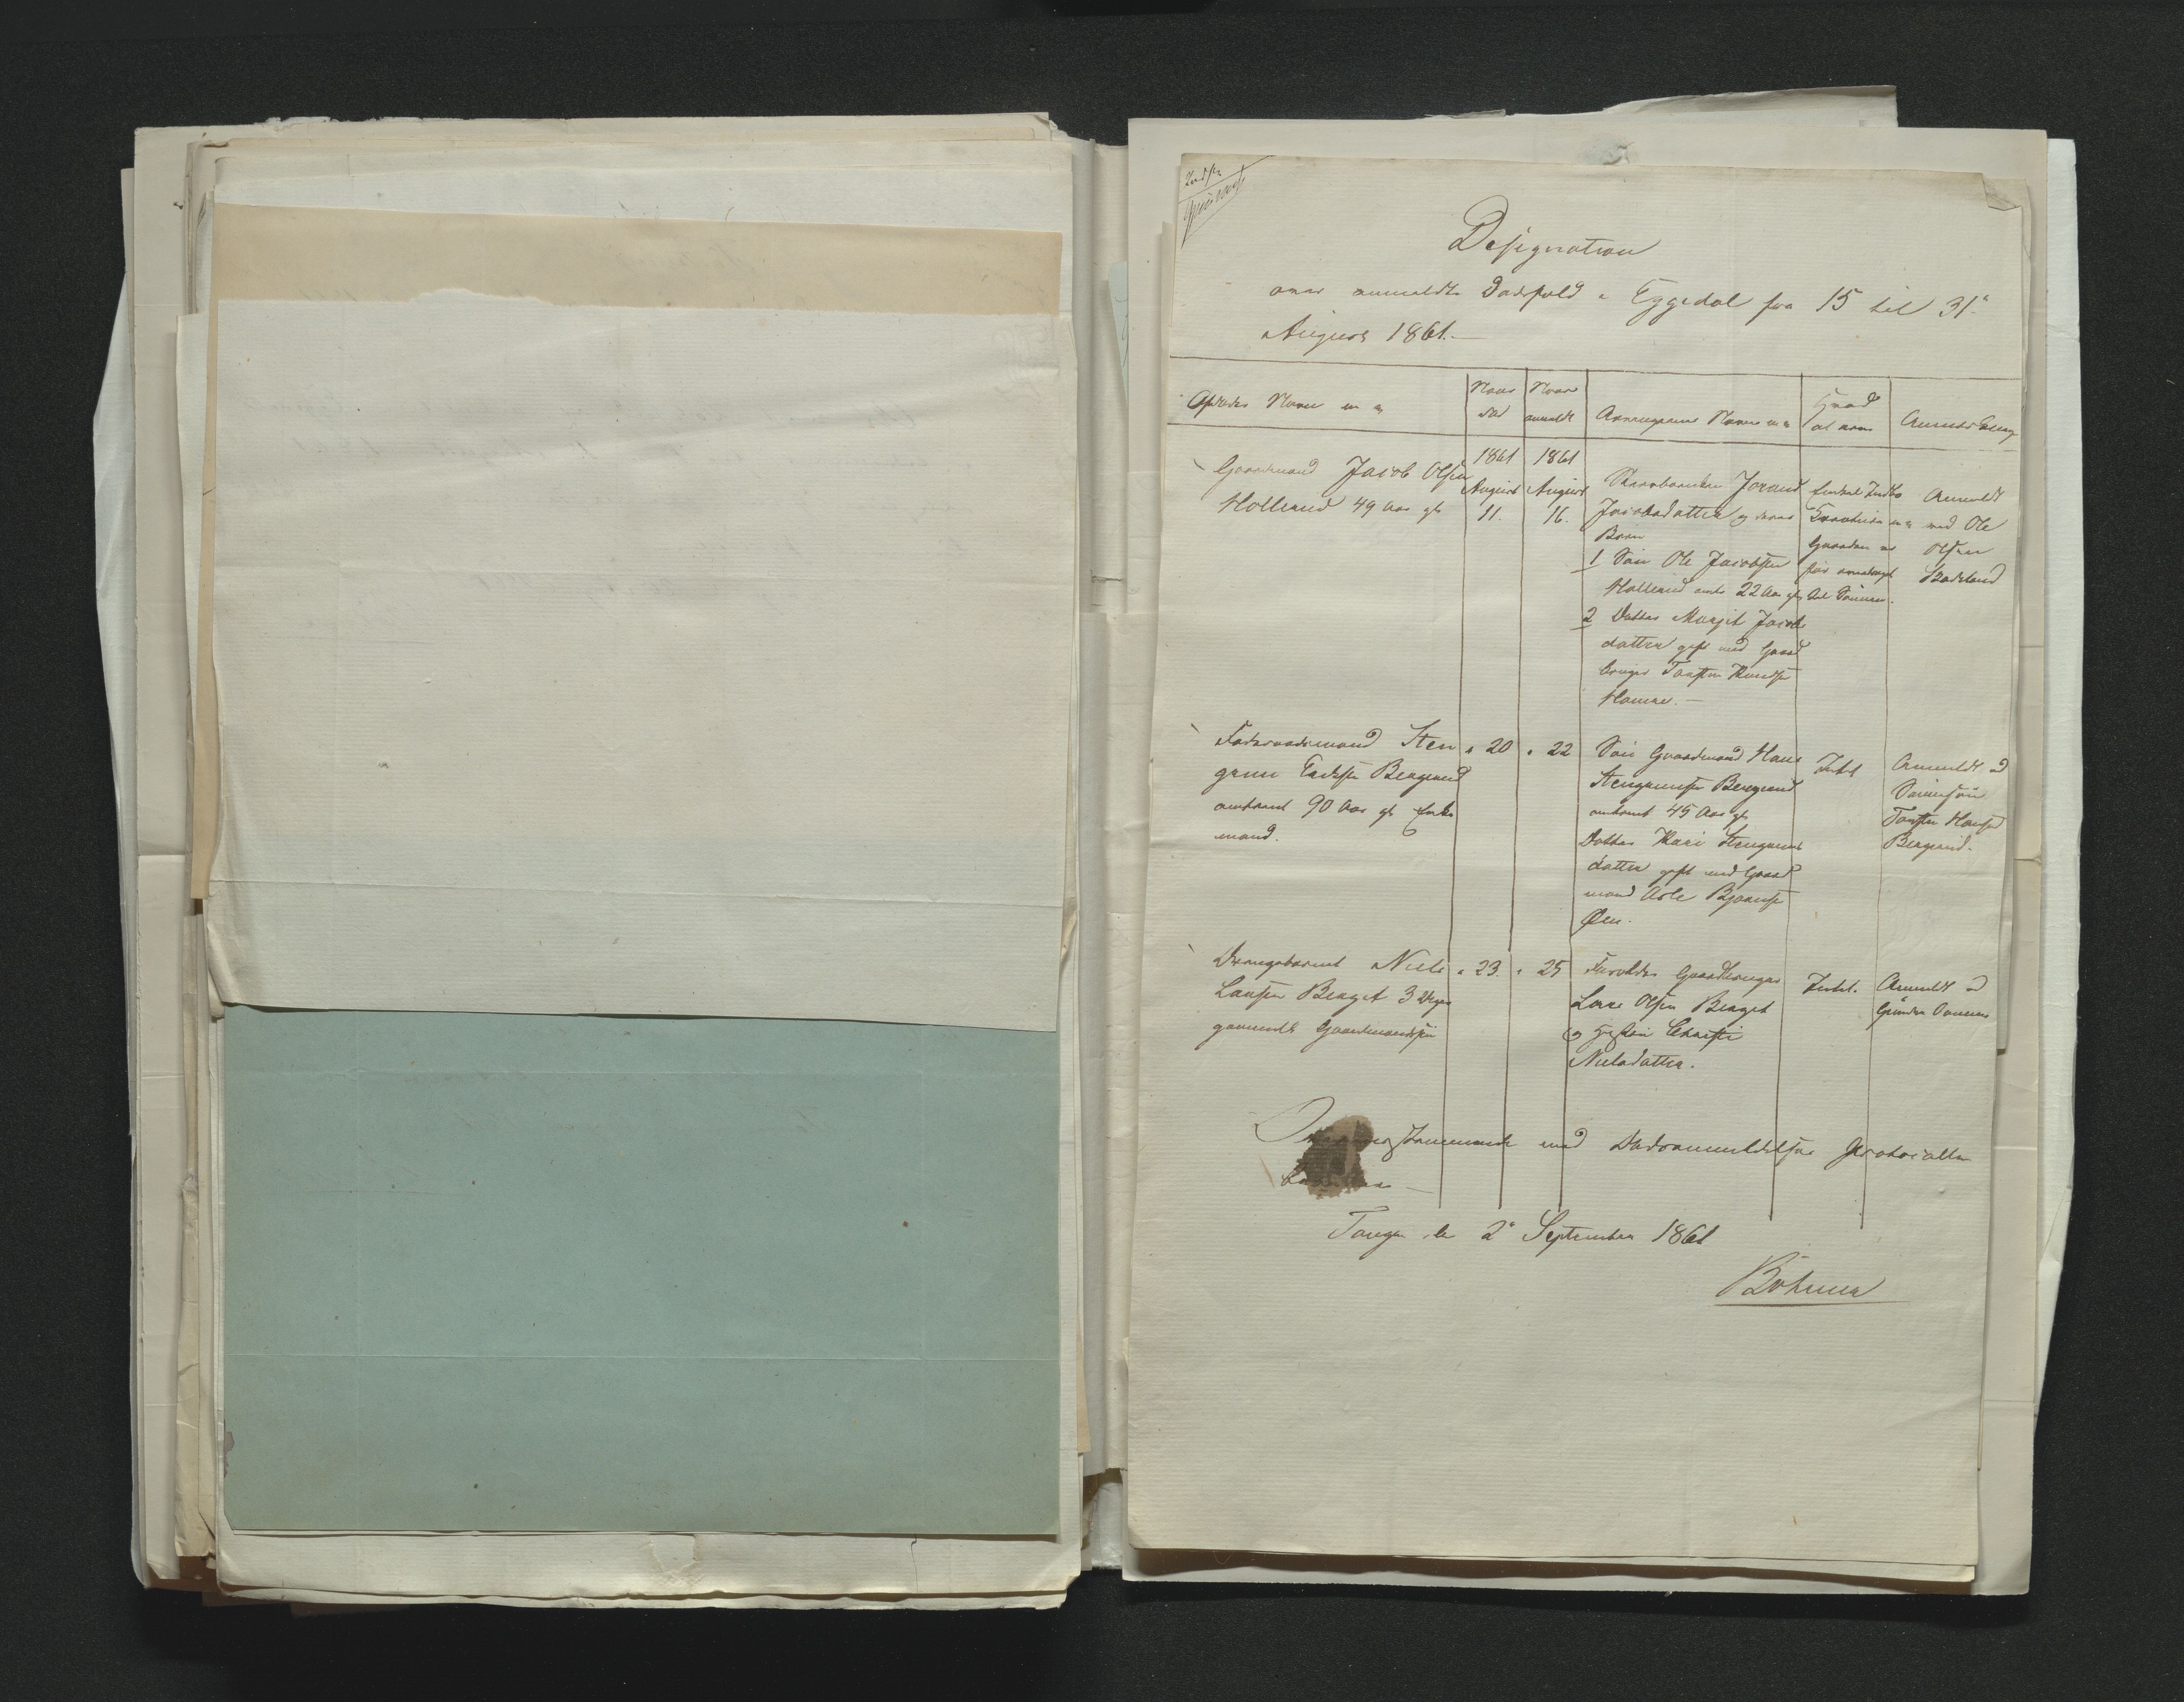 Designation
over anmeldte Dødsfald i Eggedal fra 15 til 31te
August 1861.—
Afdødes Navn m m
Naar død
Naar anmeldt
Arvingernes Navne m m
Hvad at arve
Anmærkning
Gaardmand Jacob Olsen
Hollerud 49 Aar gl
1861
August
11.
1861
August
16.
Jorand
Jacobsdatter og deres
Børn
1 Søn Ole Jacobsen
Hollerud omtr 22 Aar gl
2 Datter Margit Jacobs
datter gift med Gaard
bruger Torsten Knudsen
Hamre.—
Gaarden er
før
til Sønnen.
Anmeldt
med Ole
Olsen
Fosteraadsmand Sten
grim Eriksen Bergerud
omtrent 90 Aar gl Enke
mand.
" 20
" 22
Søn Gaardmand Hans
Stengrimsen Bergerud
omtrent 45 Aar gl
Datter Kari Stengrims
datter gift med Gaard
mand Asle Bjørnsen
Øen.
Intet
Anmeldt v
Sønnesøn
Torsten Hansen
Bergerud.
Drengebarnet Niels
Larsen Berget 3 Uger
gammelt Gaardmandssøn
" 23.
" 25
Forældre Gaardbruger
Lars Olsen Berget
og Hustru Christi
Nielsdatter.
Intet.
Anmeldt v
med Dødsanmeldelses Protocollen
2den September 1861
Bøhmer